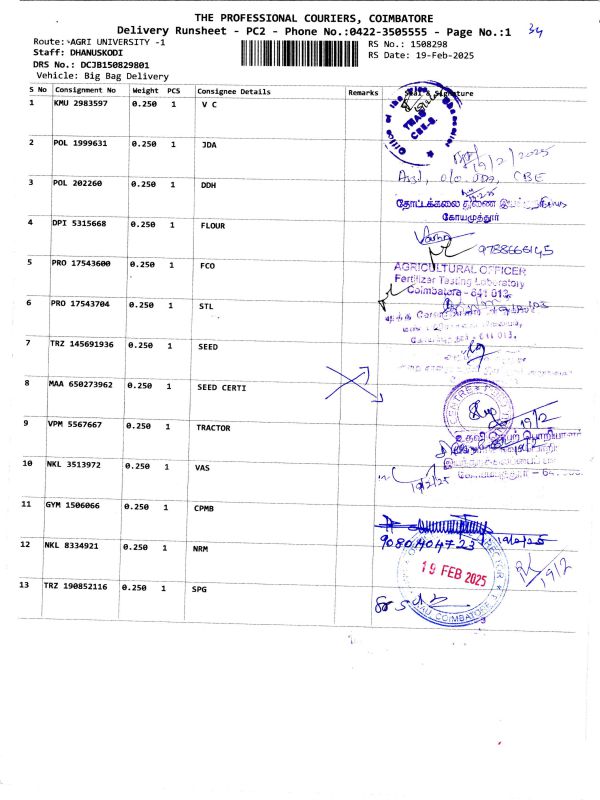 THE PROFESSIONAL COURIERS, COIMBATORE
Delivery Runsheet - PC2 - Phone No.:0422-3505555 - Page No.:1 34
Route: AGRI UNIVERSITY -1 RS No.: 1508298
Staff: DHANUSKODI RS Date: 19-Feb-2025
DRS No.: DCJB150829801
Vehicle: Big Bag Delivery
S No Consignment No Weight PCS Consignee Details Remarks Seal & Signature
1 KMU 2983597 0.250 1 V C
Office of the Vice Chancellor
TNAU
CBE-3.
2 POL 1999631 0.250 1 JDA
19/2/2025
3 POL 202260 0.250 1 DDH
Asst, o/o JDA, CBE
தோட்டக்கலை துணை
கோயமுத்தூர்
4 DPI 5315668 0.250 1 FLOUR
9788666145
5 PRO 17543600 0.250 1 FCO
AGRICULTURAL OFFICER
Fertilizer Testing Laboratory
Coimbatore - 641 013.
6 PRO 17543704 0.250 1 STL
641 013.
7 TRZ 145691936 0.250 1 SEED
8 MAA 650273962 0.250 1 SEED CERTI
CENTRE
9 VPM 5567667 0.250 1 TRACTOR
19/2
உதவி செயற் பொறியாளர்
10 NKL 3513972 0.250 1 VAS
19/2/25
11 GYM 1506066 0.250 1 CPMB
19/2/25
12 NKL 8334921 0.250 1 NRM
9080404723
19 FEB 2025
19/2
13 TRZ 190852116 0.250 1 SPG
TNAU, COIMBATORE-3